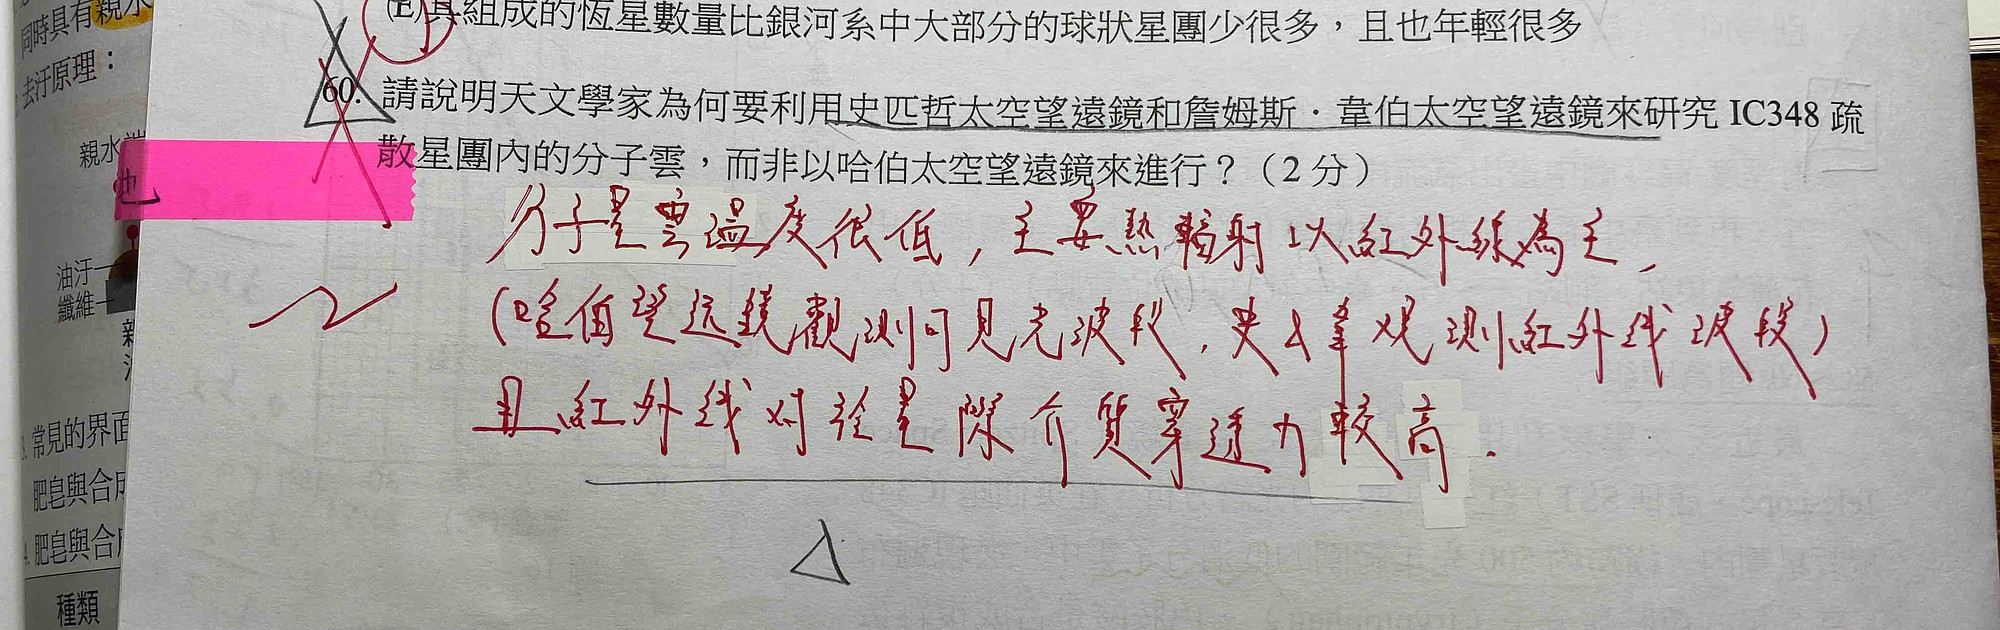 同時具有親水
去汙原理：
親水端
也
油汙
纖維
親
常見的界面
肥皂與合成
肥皂與合
種類
(E)其組成的恆星數量比銀河系中大部分的球狀星團少很多，且也年輕很多
60. 請說明天文學家為何要利用史匹哲太空望遠鏡和詹姆斯．韋伯太空望遠鏡來研究 IC348 疏
散星團內的分子雲，而非以哈伯太空望遠鏡來進行？（2 分）
分子星雲溫度很低，主要熱輻射以紅外線為主，
(哈伯望远鏡觀測可見光波段，史&韋观測紅外线波段)
且紅外线对於星際介質穿透力較高.